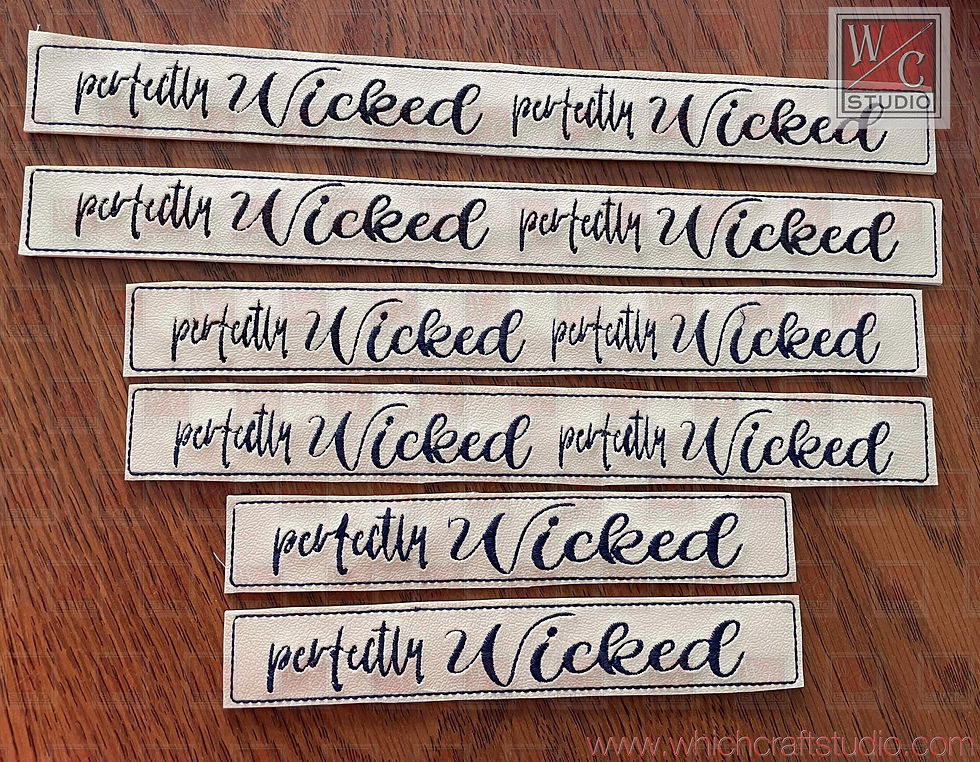 W/C
STUDIO
perfectly Wicked perfectly Wicked
perfectly Wicked perfectly Wicked
perfectly Wicked perfectly Wicked
perfectly Wicked perfectly Wicked
perfectly Wicked
perfectly Wicked
www.whichcraftstudio.com